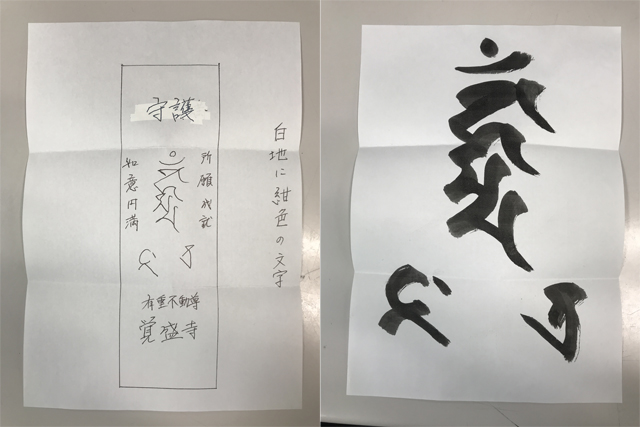 白地に紺色の文字
守護
所願成就
如意円満
有重不動尊
覚盛寺